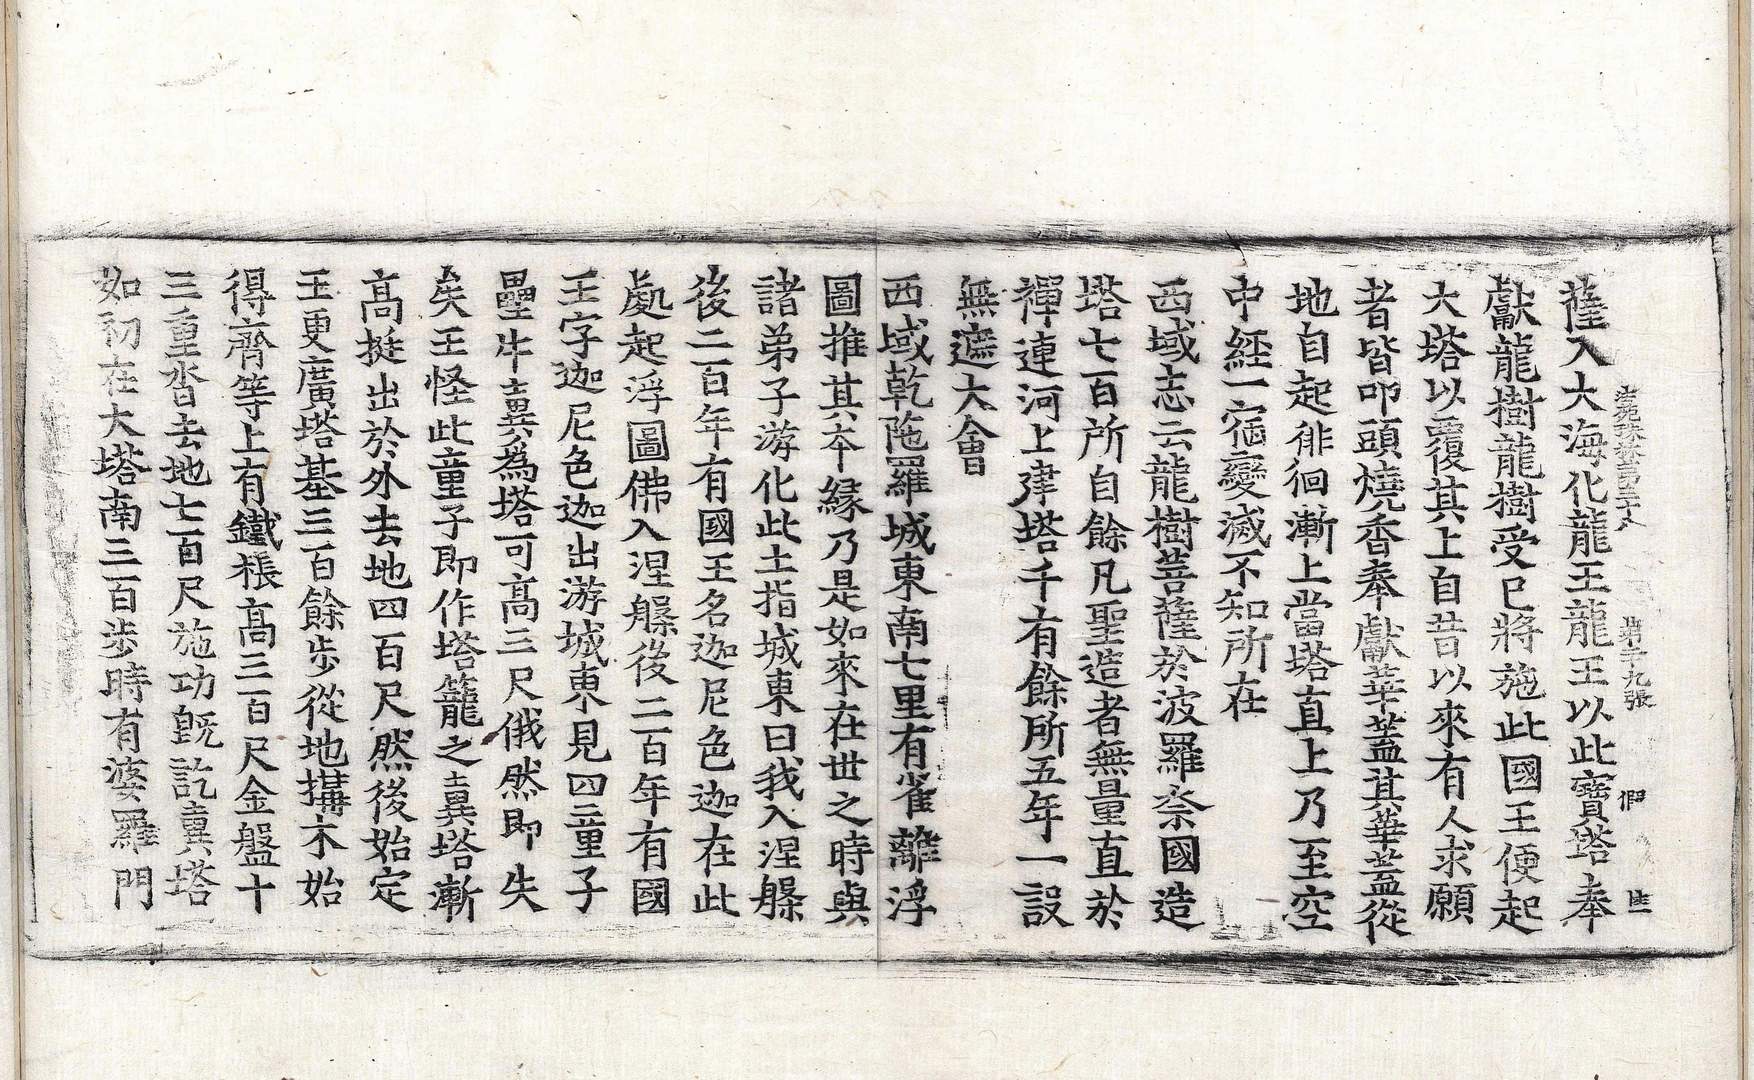 薩入大海化龍王龍王以此寶塔奉
獻龍樹龍樹受已將施此國王便起
大塔以覆其上自昔以來有人求願
者皆叩頭燒香奉獻華蓋其華蓋從
地自起徘徊漸上當塔直上乃至空
中經一宿變滅不知所在
西域志云龍樹菩薩於波羅柰國造
塔七百所自餘凡聖造者無量直於
禪連河上建塔千有餘所五年一設
無遮大會
西域乾陁羅城東南七里有雀離浮
圖推其本緣乃是如來在世之時與
諸弟子游化此土指城東曰我入涅槃
後二百年有國王名迦尼色迦在此
處起浮圖佛入涅槃後二百年有國
王字迦尼色迦出游城東見四童子
壘牛糞為塔可高三尺俄然即失
矣王怪此童子即作塔籠之糞塔漸
高挺出於外去地四百尺然後始定
王更廣塔基三百餘步從地搆木始
得齊等上有鐵棖高三百尺金盤十
三重沓去地七百尺施功既訖糞塔
如初在大塔南三百步時有婆羅門